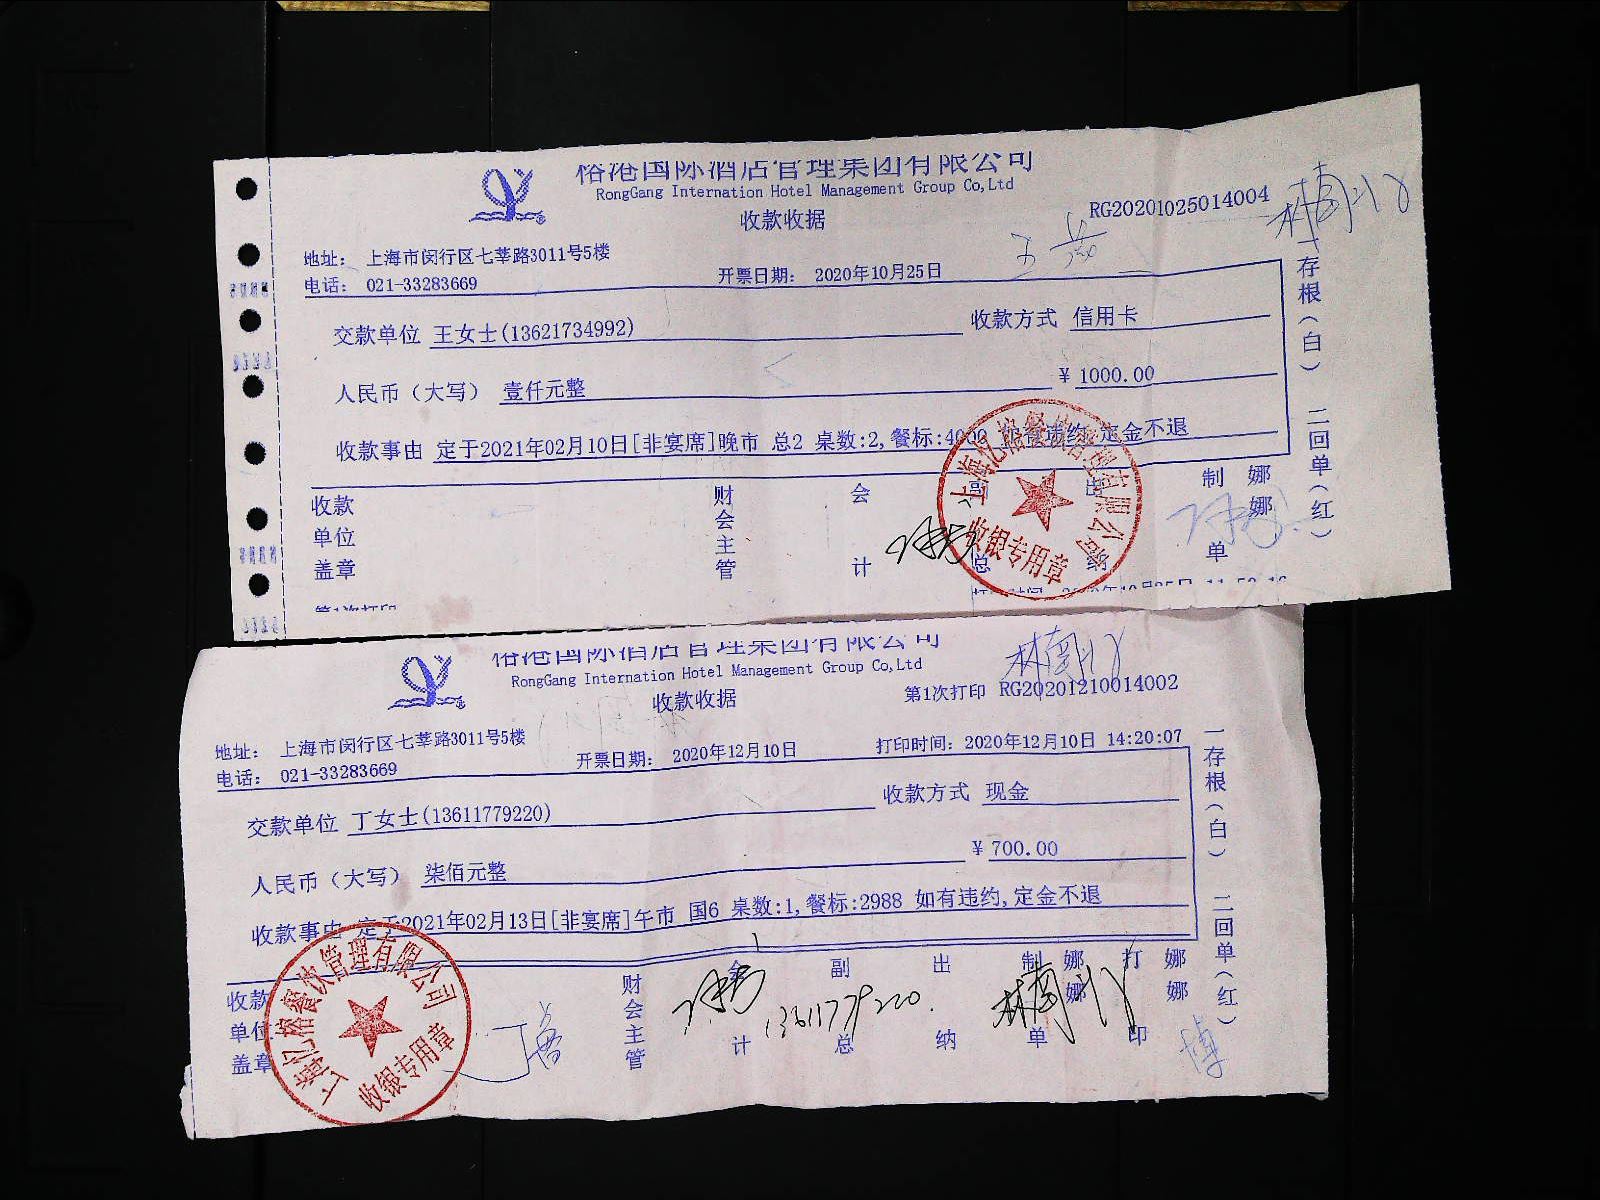 榕港国际酒店管理集团有限公司
RongGang Internation Hotel Management Group Co,Ltd
收款收据
RG20201025014004
地址： 上海市闵行区七莘路3011号5楼
电话： 021-33283669
开票日期： 2020年10月25日
交款单位 王女士(13621734992)
收款方式 信用卡
人民币（大写） 壹仟元整
¥ 1000.00
收款事由 定于2021年02月10日[非宴席]晚市 总2 桌数:2,餐标:4000 如有违约,定金不退
收款单位盖章
财会主管
会计
副总
出纳
制单
娜娜
一存根（白） 二回单（红）
上海亿榕餐饮管理有限公司
收银专用章
第1次打印
榕港国际酒店管理集团有限公司
RongGang Internation Hotel Management Group Co,Ltd
收款收据
第1次打印 RG20201210014002
地址： 上海市闵行区七莘路3011号5楼
电话： 021-33283669
开票日期： 2020年12月10日
打印时间：2020年12月10日 14:20:07
交款单位 丁女士(13611779220)
收款方式 现金
人民币（大写） 柒佰元整
¥ 700.00
收款事由 定于2021年02月13日[非宴席]午市 国6 桌数:1,餐标:2988 如有违约,定金不退
收款单位盖章
财会主管
会计
副总
出纳
制单
娜娜
打印
娜娜
13611779220
一存根（白） 二回单（红）
上海亿榕餐饮管理有限公司
收银专用章